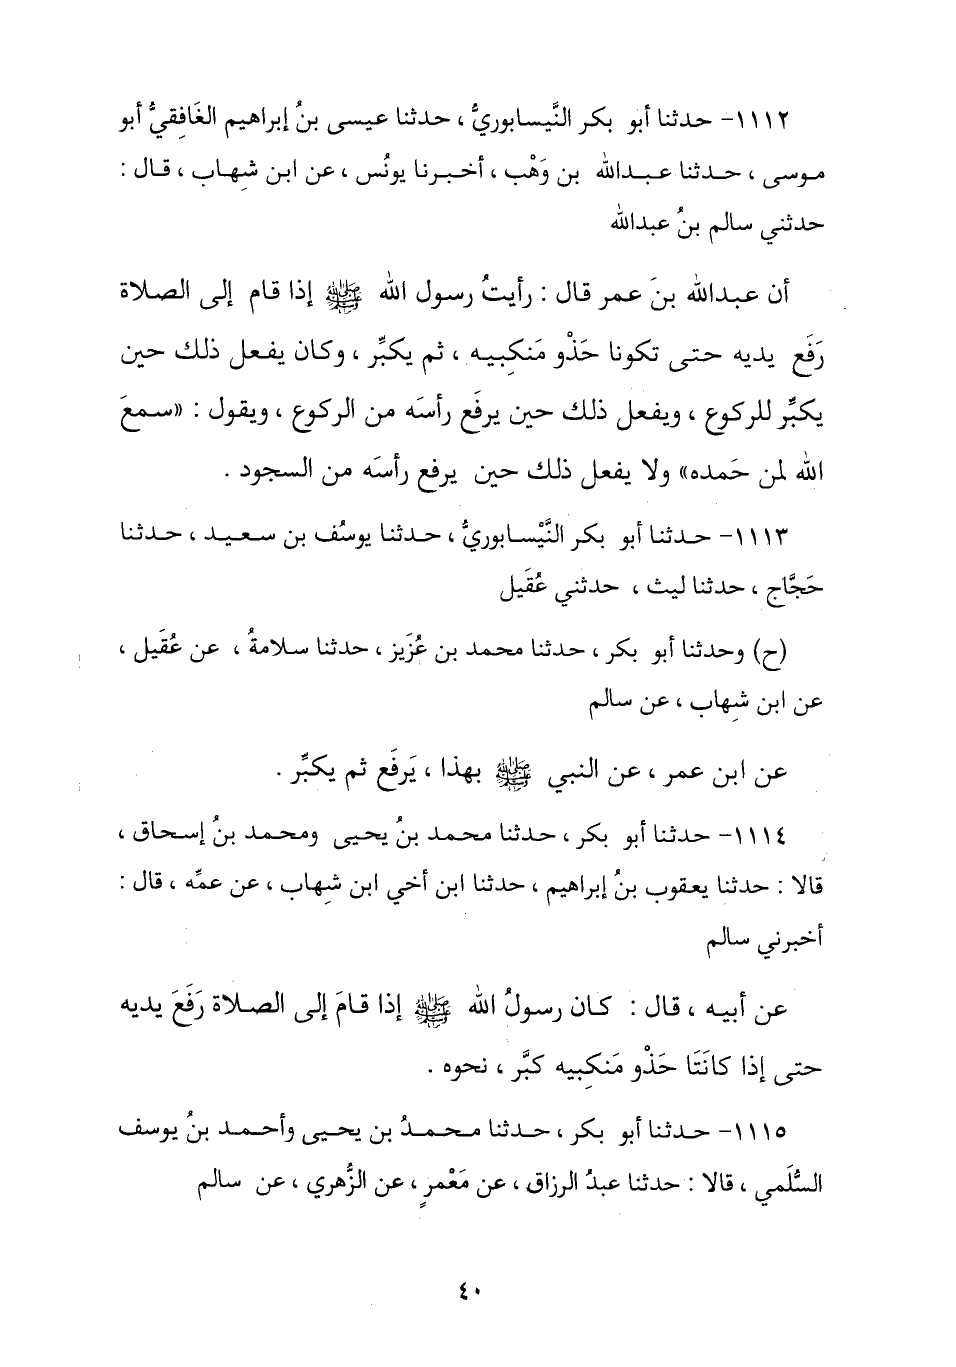 ١١١٢- حدثنا أبو بكر النَّيسابوريُّ ، حدثنا عيسى بنُ إبراهيم الغَافِقيُّ أبو
موسى ، حدثنا عبدالله بن وَهْب ، أخبرنا يونُس ، عن ابن شِهاب ، قال :
حدثني سالم بنُ عبدالله
أن عبدالله بنَ عمر قال : رأيتُ رسول الله ﷺ إذا قام إلى الصلاة
رَفَع يديه حتى تكونا حَذْو مَنكِبيه ، ثم يكبِّر ، وكان يفعل ذلك حين
يكبِّر للركوع ، ويفعل ذلك حين يرفَع رأسَه من الركوع ، ويقول : «سمعَ
الله لمن حَمده» ولا يفعل ذلك حين يرفع رأسَه من السجود .
١١١٣- حدثنا أبو بكر النَّيْسابوريُّ ، حدثنا يوسُف بن سعيد ، حدثنا
حَجَّاج ، حدثنا ليث ، حدثني عُقَيل
(ح) وحدثنا أبو بكر ، حدثنا محمد بن عُزَيز ، حدثنا سلامةُ ، عن عُقَيل ،
عن ابن شِهاب ، عن سالم
عن ابن عمر ، عن النبي ﷺ بهذا ، يَرفَع ثم يكبِّر .
١١١٤- حدثنا أبو بكر ، حدثنا محمد بنُ يحيى ومحمد بنُ إسحاق ،
قالا : حدثنا يعقوب بنُ إبراهيم ، حدثنا ابن أخي ابن شِهاب ، عن عمِّه ، قال :
أخبرني سالم
عن أبيه ، قال : كان رسولُ الله ﷺ إذا قامَ إلى الصلاة رَفَعَ يديه
حتى إذا كانَتَا حَذْو مَنكِبيه كبَّر ، نحوه .
١١١٥- حدثنا أبو بكر ، حدثنا محمدُ بن يحيى وأحمد بنُ يوسف
السُّلَمي ، قالا : حدثنا عبدُ الرزاق ، عن مَعْمرٍ ، عن الزُّهري ، عن سالم
٤٠